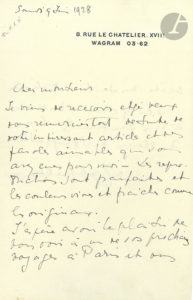 Samedi 9 Juin 1928
8. RUE LE CHATELIER. XVIIᵉ
WAGRAM 03-62
Cher Monsieur
Je viens de recevoir et je veux
vous remercier tout de suite de
votre intéressant article et des
paroles aimables que vous
avez eues pour moi — Les repro-
ductions sont parfaites et
les couleurs vives et fraîches comme
les originaux.
J'espère avoir le plaisir de
vous voir à un de vos prochains
voyages à Paris et vous